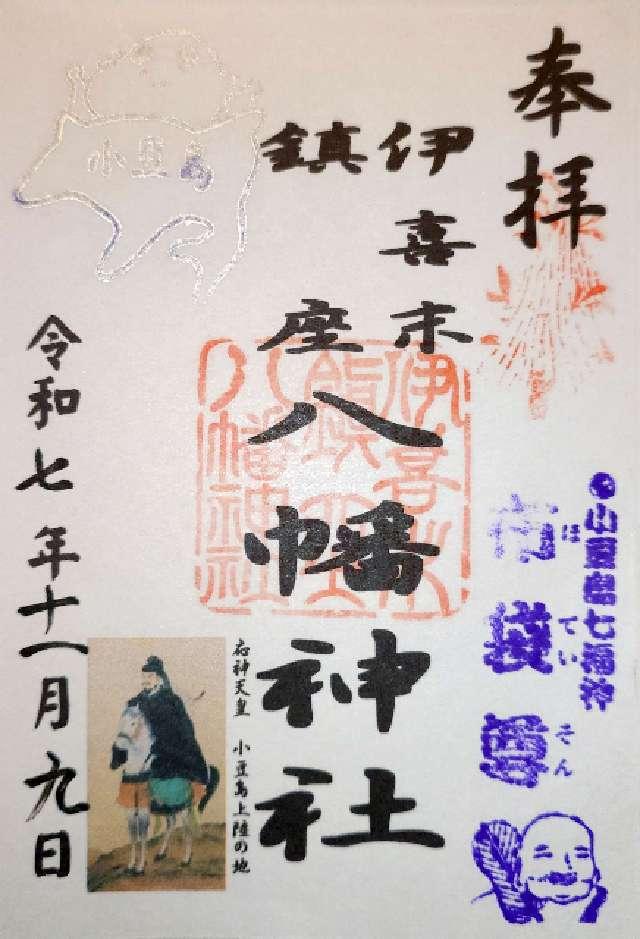 奉拝
伊喜末
鎮座
八幡神社
伊喜末
鎮座
八幡神社
小豆島七福神
布袋尊
ほていそん
応神天皇 小豆島上陸の地
小豆島
令和七年十一月九日